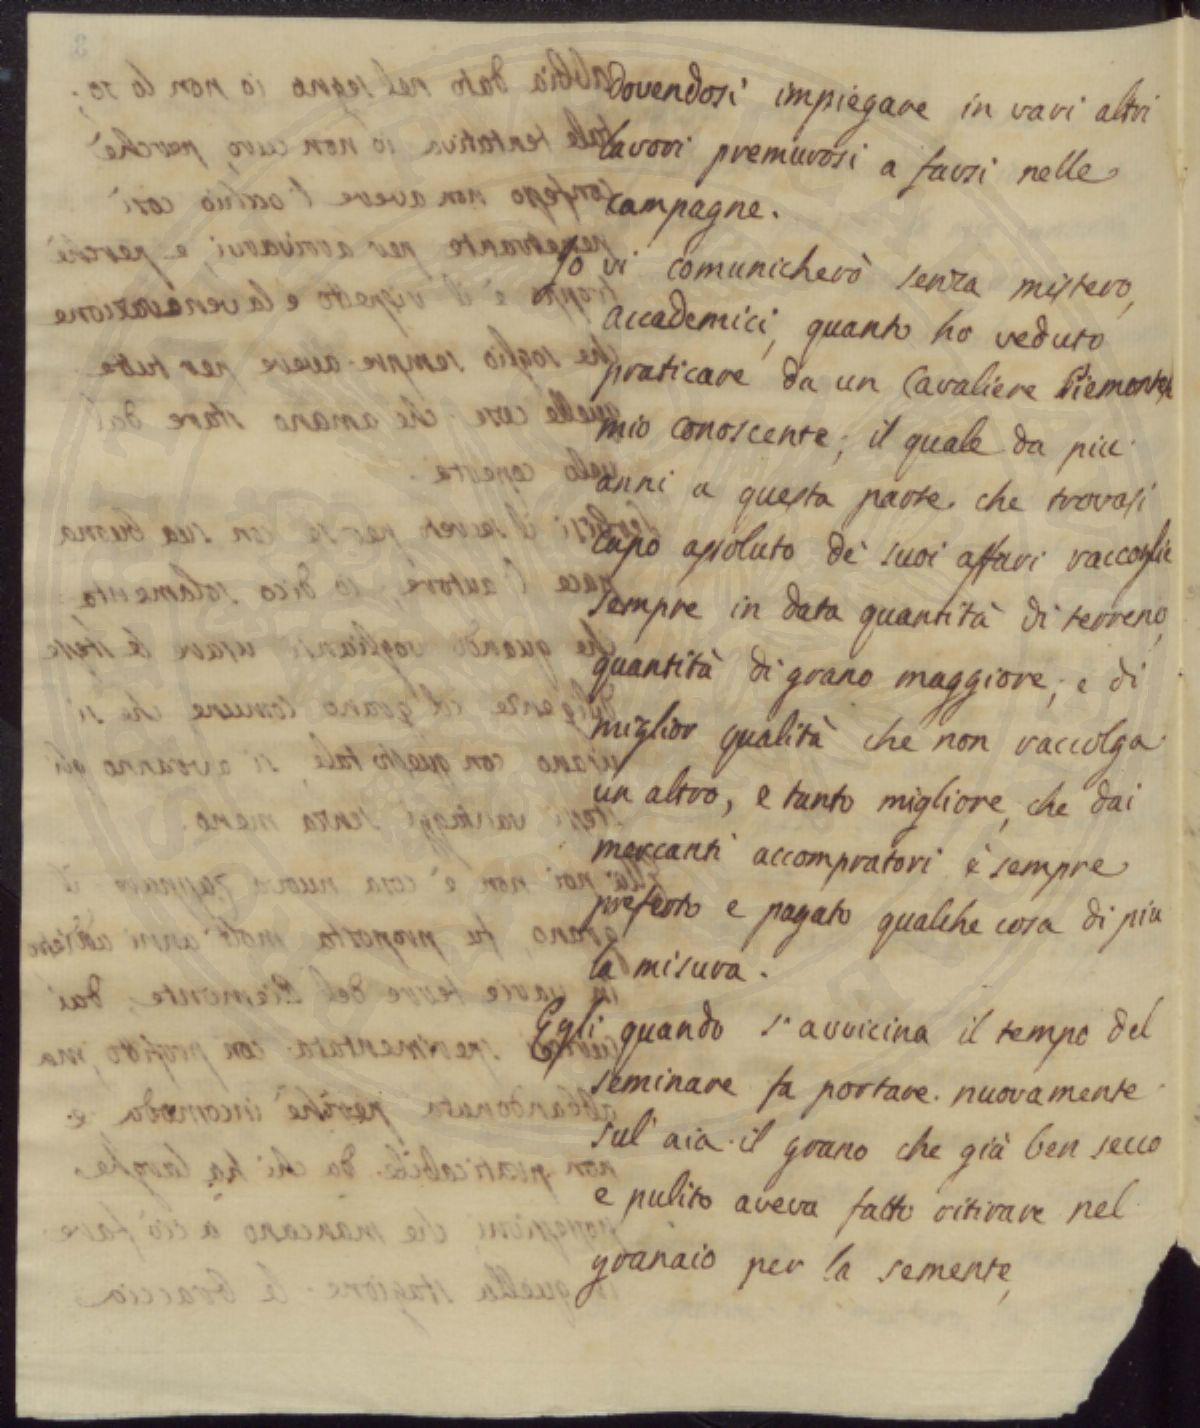 dovendosi impiegare in vari altri
lavori premurosi a farsi nelle
campagne.
Io vi comunicherò senza mistero,
Accademici, quanto ho veduto
praticare da un Cavaliere Piemontese
mio conoscente; il quale da più
anni a questa parte che trovasi
capo assoluto de' suoi affari raccoglie
sempre in data quantità di terreno,
quantità di grano maggiore, e di
miglior qualità che non raccolga
un altro, e tanto migliore, che dai
mercanti accompratori è sempre
preferto e pagato qualche cosa di più
la misura.
Egli quando s'avvicina il tempo del
seminare fa portare nuovamente
sul aia il grano che già ben secco
e pulito aveva fatto ritirare nel
granaio per la semente,